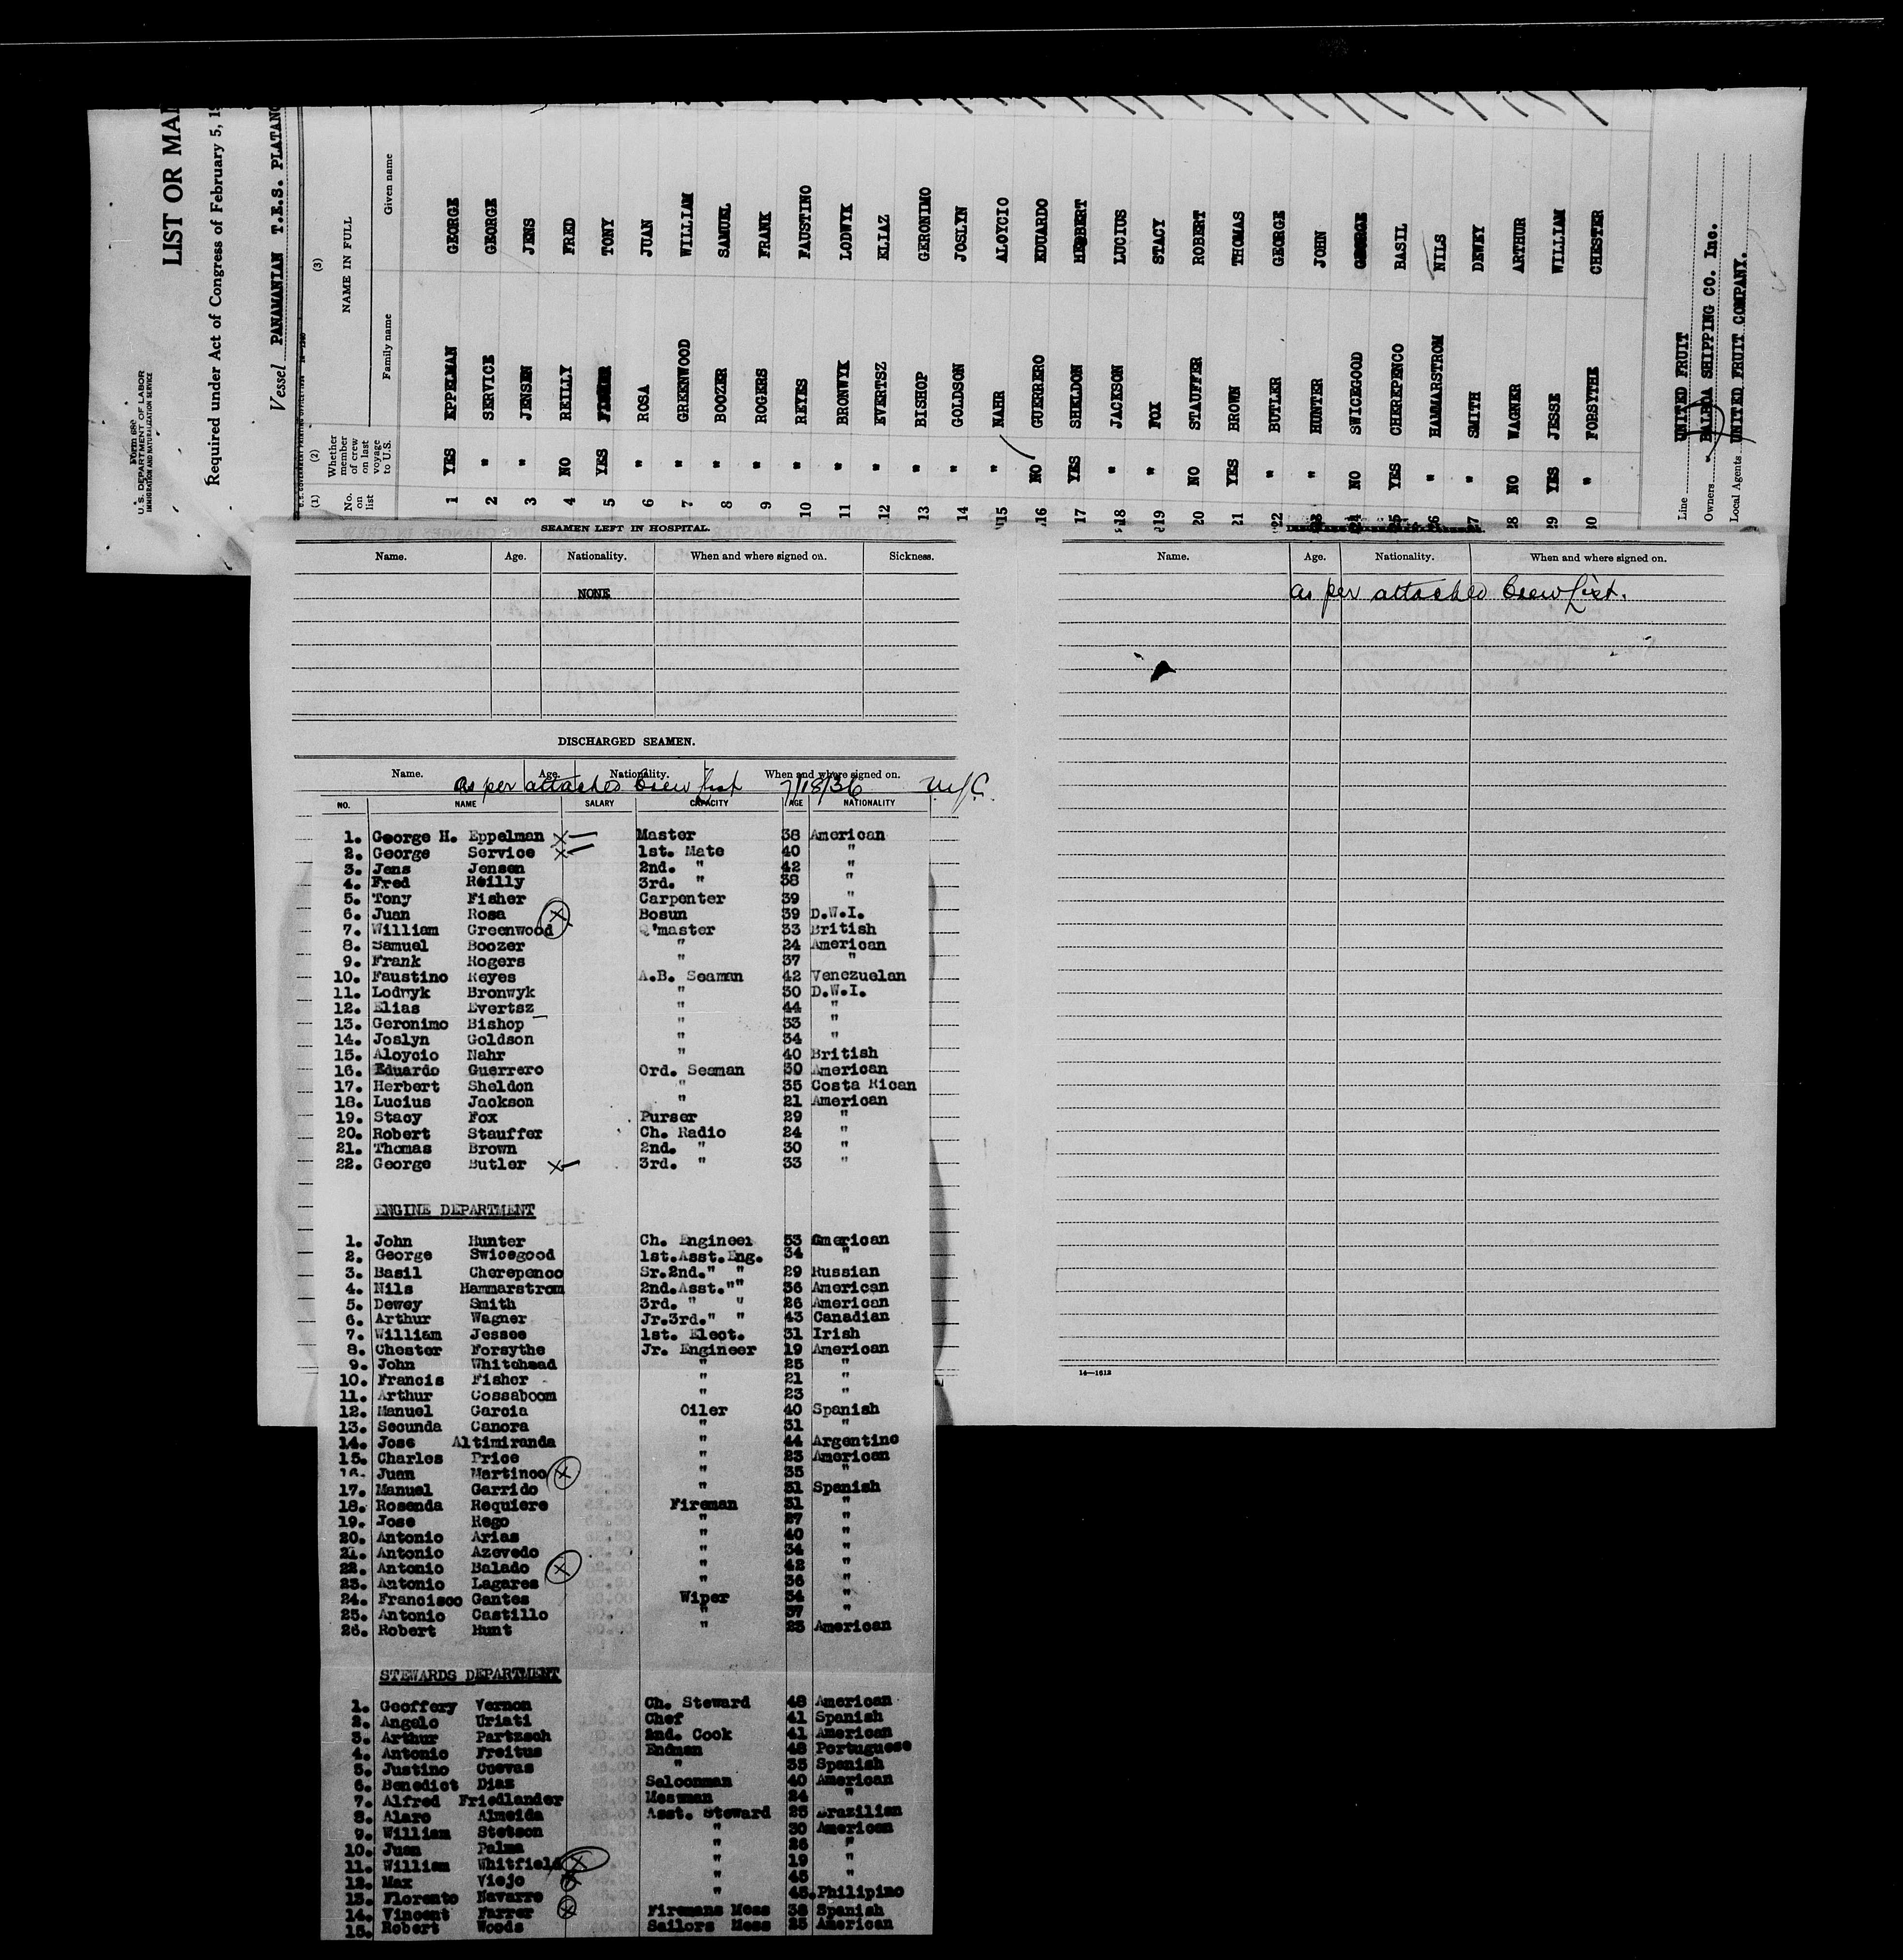 Form 680
U.S. DEPARTMENT OF LABOR
IMMIGRATION AND NATURALIZATION SERVICE
LIST OR
Required under Act of Congress of February 5,
Vessel PANAMANIAN T.E.S.
(1) (2) (3)
No. on list Whether member of crew on last voyage to U.S. NAME IN FULL
Family name Given name
1 YES EPPELMAN GEORGE
2 " SERVICE GEORGE
3 " JENSEN JENS
4 NO REILLY FRED
5 YES TONY
6 " ROSA JUAN
7 " GREENWOOD WILLIAM
8 " BOOZER SAMUEL
9 " ROGERS FRANK
10 " REYES FAUSTINO
11 " BRONWYK LODWYK
12 " EVERTSZ ELIAZ
13 " BISHOP GERONIMO
14 " GOLDSON JOSLYN
15 " NAHR ALOYCIO
16 NO GUERRERO EDUARDO
17 YES SHELDON HERBERT
18 " JACKSON LUCIUS
19 " FOX STACY
20 NO STAUFFER ROBERT
21 YES BROWN THOMAS
22 " BUTLER GEORGE
23 " HUNTER JOHN
24 NO SWICEGOOD GEORGE
25 YES CHEREPENCO BASIL
26 " HAMMARSTROM NILS
27 " SMITH DEWEY
28 NO WAGNER ARTHUR
29 YES JESSE WILLIAM
30 " FORSYTHE CHESTER
Line UNITED FRUIT
Owners " BALBOA SHIPPING CO. Inc.
Local Agents UNITED FRUIT COMPANY.
SEAMEN LEFT IN HOSPITAL.
Name. Age. Nationality. When and where signed on. Sickness.
NONE
DISCHARGED SEAMEN.
Name. Age. Nationality. When and where signed on.
as per attached Crew list 7/18/36
NO. NAME SALARY CAPACITY AGE NATIONALITY
1. George H. Eppelman X Master 38 American
2. George Service X 1st. Mate 40 "
3. Jens Jensen 2nd. " 42 "
4. Fred Reilly 3rd. " 38 "
5. Tony Fisher Carpenter 39 "
6. Juan Rosa X Bosun 39 D.W.I.
7. William Greenwood Q'master 33 British
8. Samuel Boozer " 24 American
9. Frank Rogers " 37 "
10. Faustino Reyes A.B. Seaman 42 Venezuelan
11. Lodwyk Bronwyk " 30 D.W.I.
12. Elias Evertsz " 44 "
13. Geronimo Bishop " 33 "
14. Joslyn Goldson " 34 "
15. Aloycio Nahr " 40 British
16. Eduardo Guerrero Ord. Seaman 30 American
17. Herbert Sheldon " 35 Costa Rican
18. Lucius Jackson " 21 American
19. Stacy Fox Purser 29 "
20. Robert Stauffer Ch. Radio 24 "
21. Thomas Brown 2nd. " 30 "
22. George Butler X 3rd. " 33 "
ENGINE DEPARTMENT
1. John Hunter Ch. Engineer 53 American
2. George Swicegood 1st.Asst.Eng. 34 "
3. Basil Cherepenco Sr.2nd." " 29 Russian
4. Nils Hammarstrom 2nd.Asst."" 36 American
5. Dewey Smith 3rd. " " 26 American
6. Arthur Wagner Jr.3rd." " 43 Canadian
7. William Jessee 1st. Elect. 31 Irish
8. Chester Forsythe Jr. Engineer 19 American
9. John Whitehead " 25 "
10. Francis Fisher " 21 "
11. Arthur Cossaboom " 23 "
12. Manuel Garcia Oiler 40 Spanish
13. Secunda Canora " 31 "
14. Jose Altimiranda " 44 Argentino
15. Charles Price " 23 American
16. Juan Martinco X " 35 "
17. Manuel Garrido " 31 Spanish
18. Rosenda Requiere Fireman 31 "
19. Jose Rego " 27 "
20. Antonio Arias " 40 "
21. Antonio Azevedo " 34 "
22. Antonio Balado X " 42 "
23. Antonio Lagares " 36 "
24. Francisco Gantes Wiper 34 "
25. Antonio Castillo " 37 "
26. Robert Hunt " 23 American
STEWARDS DEPARTMENT
1. Geoffery Vernon Ch. Steward 48 American
2. Angelo Uriati Chef 41 Spanish
3. Arthur Partzsch 2nd. Cook 41 American
4. Antonio Freitus Endman 48 Portuguese
5. Justino Cuevas " 35 Spanish
6. Benedict Diaz Saloonman 40 American
7. Alfred Friedlander Messman 24 "
8. Alaro Almeida Asst. Steward 25 Brazilian
9. William Stetson " 30 American
10. Juan Palma " 26 "
11. William Whitfield X " 19 "
12. Max Viejo X " 45 "
13. Florento Navarro " 45. Philipino
14. Vincent Farrer X Firemans Mess 38 Spanish
15. Robert Woods Sailors Mess 25 American
Name. Age. Nationality. When and where signed on.
as per attached Crew List.
14—1612